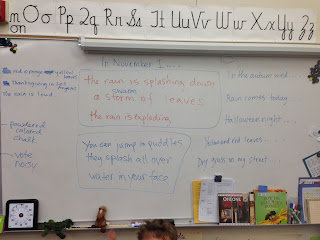 m Oo Pp Qq Rr Ss Tt Uu Vv Ww Xx Yy Zz
on
In November I....
red orange yellow leaves
Thanksgiving in Los Angeles
the rain is loud
the rain is splashing down
a storm of leaves
the rain is exploding
In the autumn wind...
Rain comes today
Halloween night....
You can jump in puddles
they splash all over
water in your face
Yellow and red leaves...
on my street...
powdered
colored
chalk
vote
noisy